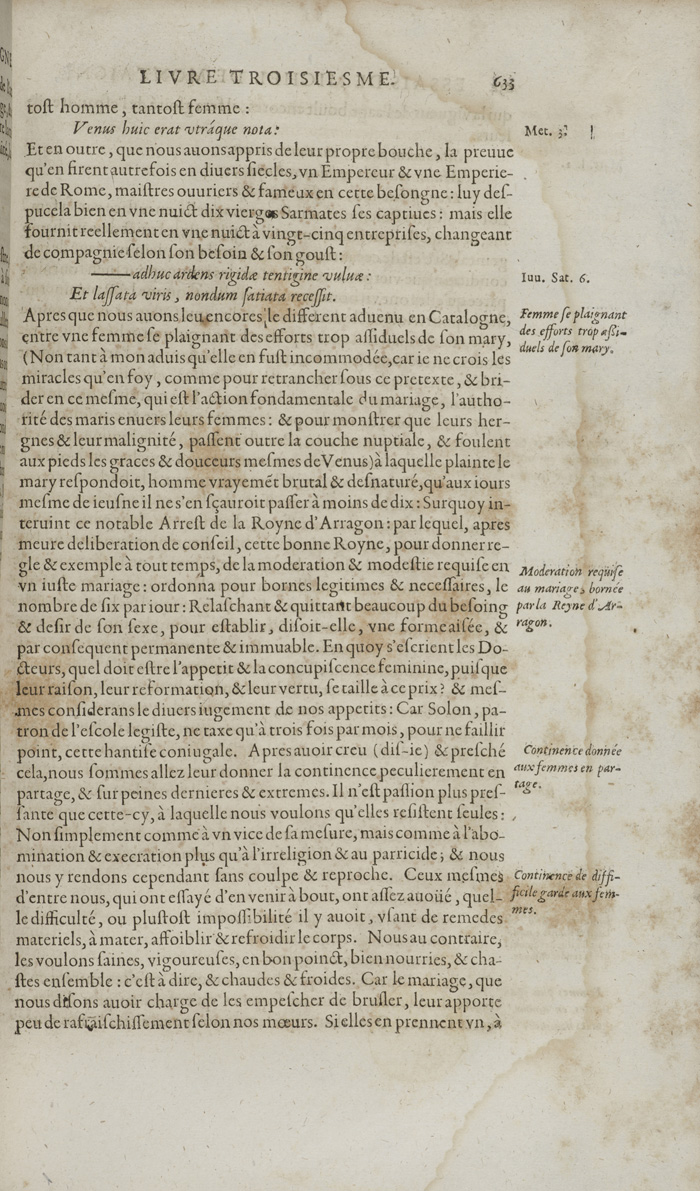 LIVRE TROISIESME. 633
toſt homme, tantoſt femme :
Venus huic erat vtráque nota:
Met. 3.
Et en outre, que nous auons appris de leur propre bouche, la preuue
qu'en firent autrefois en diuers ſiecles, vn Empereur & vne Emperie-
re de Rome, maiſtres ouuriers & fameux en cette beſongne : luy deſ-
pucela bien en vne nuict dix vierges Sarmates ſes captiues : mais elle
fournit reellement en vne nuict à vingt-cinq entrepriſes, changeant
de compagnie ſelon ſon beſoin & ſon gouſt:
——adhuc ardens rigidæ tentigine vuluæ :
Iuu. Sat. 6.
Et laſſata viris, nondum ſatiata receſſit.
Apres que nous auons leu encores le different aduenu en Catalogne,
Femme ſe plaignant
des efforts trop aſſi-
duels de ſon mary.
entre vne femme ſe plaignant des efforts trop aſſiduels de ſon mary,
(Non tant à mon aduis qu'elle en fuſt incommodée, car ie ne crois les
miracles qu'en foy, comme pour retrancher ſous ce pretexte, & bri-
der en ce meſme, qui eſt l'action fondamentale du mariage, l'autho-
rité des maris enuers leurs femmes : & pour monſtrer que leurs her-
gnes & leur malignité, paſſent outre la couche nuptiale, & foulent
aux pieds les graces & douceurs meſmes de Venus) à laquelle plainte le
mary reſpondoit, homme vrayemẽt brutal & deſnaturé, qu'aux iours
meſme de ieuſne il ne s'en ſçauroit paſſer à moins de dix : Surquoy in-
teruint ce notable Arreſt de la Royne d'Arragon : par lequel, apres
meure deliberation de conſeil, cette bonne Royne, pour donner re-
gle & exemple à tout temps, de la moderation & modeſtie requiſe en
Moderation requiſe
au mariage, bornée
par la Reyne d'Ar-
ragon.
vn iuſte mariage : ordonna pour bornes legitimes & neceſſaires, le
nombre de ſix par iour : Relaſchant & quittant beaucoup du beſoing
& deſir de ſon ſexe, pour eſtablir, diſoit-elle, vne forme aiſée, &
par conſequent permanente & immuable. En quoy s'eſcrient les Do-
cteurs, quel doit eſtre l'appetit & la concupiſcence feminine, puiſque
leur raiſon, leur reformation, & leur vertu, ſe taille à ce prix ? & meſ-
mes conſiderans le diuers iugement de nos appetits : Car Solon, pa-
tron de l'eſcole legiſte, ne taxe qu'à trois fois par mois, pour ne faillir
point, cette hantiſe coniugale. Apres auoir creu (diſ-ie) & preſché
Continence donnée
aux femmes en par-
tage.
cela, nous ſommes allez leur donner la continence peculierement en
partage, & ſur peines dernieres & extremes. Il n'eſt paſſion plus preſ-
ſante que cette-cy, à laquelle nous voulons qu'elles reſiſtent ſeules :
Non ſimplement comme à vn vice de ſa meſure, mais comme à l'abo-
mination & execration plus qu'à l'irreligion & au parricide ; & nous
nous y rendons cependant ſans coulpe & reproche. Ceux meſmes
Continence de diffi-
ficile garde aux fem-
mes.
d'entre nous, qui ont eſſayé d'en venir à bout, ont aſſez auoüé, quel-
le difficulté, ou pluſtoſt impoſſibilité il y auoit, vſant de remedes
materiels, à mater, affoiblir & refroidir le corps. Nous au contraire,
les voulons ſaines, vigoureuſes, en bon poinct, bien nourries, & cha-
ſtes enſemble : c'eſt à dire, & chaudes & froides. Car le mariage, que
nous diſons auoir charge de les empeſcher de bruſler, leur apporte
peu de rafraiſchiſſement ſelon nos mœurs. Si elles en prennent vn, à